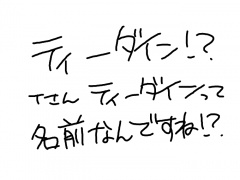 ティーダイン!?
Tさん ティーダインって
名前なんですね!?